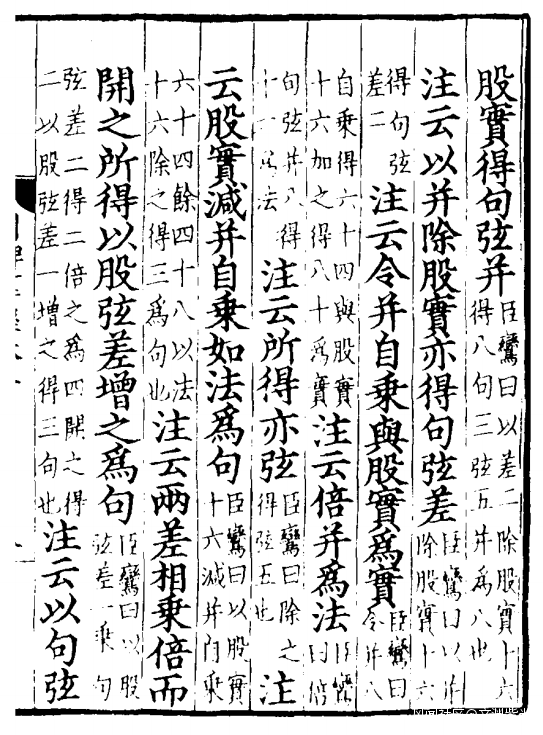 股實得句弦并臣鸞曰以差二除股實十六得八句三弦五并爲八也
注云以并除股實亦得句弦差臣鸞曰以并除股實十六
得句弦差二注云令并自乘與股實爲實臣鸞曰令并八
自乘得六十四與股實十六加之得八十爲實注云倍并爲法臣鸞曰倍
句弦并八得十六爲法注云所得亦弦臣鸞曰除之得弦五也注
云股實減并自乘如法爲句臣鸞曰以股實十六減并自乘
六十四餘四十八以法十六除之得三爲句也注云兩差相乘倍而
開之所得以股弦差增之爲句臣鸞曰以股弦差一乘句
弦差二得二倍之爲四開之得二以股弦差一增之得三句也注云以句弦